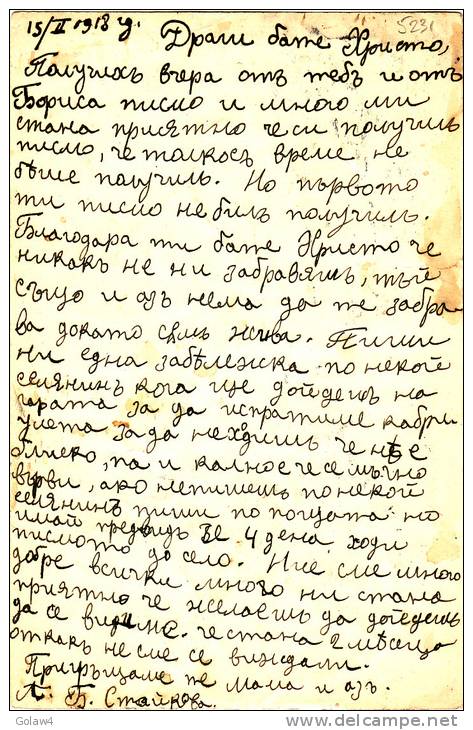 15/II 1918 г.
5231
Драги бате Христо,
Получихъ вчера отъ тебъ и отъ
Бориса писмо и много ми
стана приятно че си получилъ
писмо, че толкосъ време не
бѣше получилъ. Но първото
ти писмо не билъ получилъ.
Благодара ти бате Христо че
никакъ не ни забравяшъ, тъй
също и азъ нема да те забра-
ва докато съмъ жива. Пиши
ни една забѣлежка по некой
селянинъ кога ще дойдешъ на
гарата за да испратиме кабри
улета за да неходишъ че не е
близко, па и калное че се мъчно
върви, ако непишешъ по некой
селянинъ пиши по пощата но
имай предвидъ ЗЕ 4 дена ходи
писмото до село. Ние сме много
добре всички много ни стана
приятно че желаешъ да дойдешъ
да се видиме. че стана 2 месѣца
откакъ не сме се виждали.
Пригръщаме те мама и азъ.
Л. Б. Стайкова.
Golaw4
delcampe.net